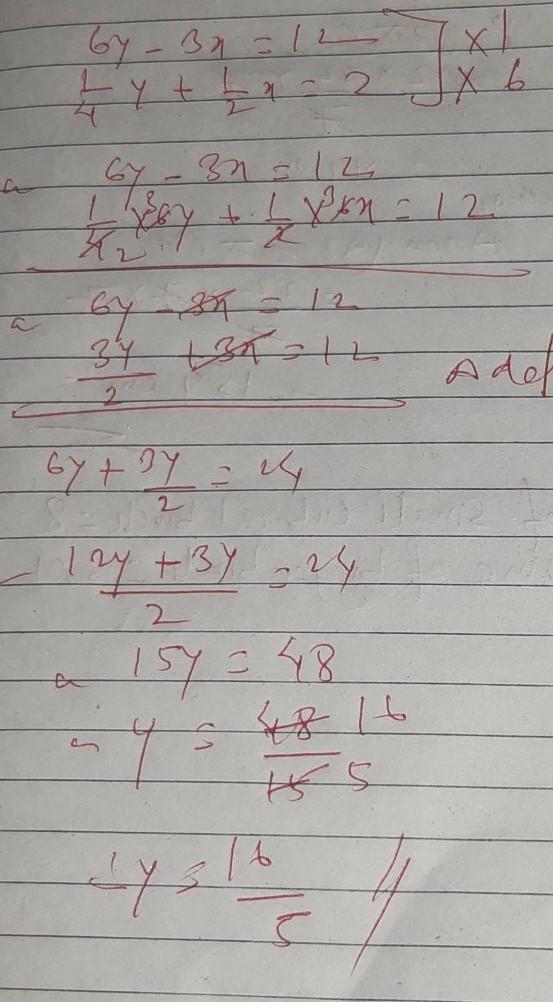 6y - 3x = 12 ] × 1
1/4 y + 1/2 x = 2 ] × 6
6y - 3x = 12
1/4 2 × 3 6y + 1/2 × 3 6x = 12
6y - 3x = 12
3y/2 + 3x = 12
6y + 3y/2 = 24
12y + 3y/2 = 24
15y = 48
y = 48 16/15 5
y = 16/5 //